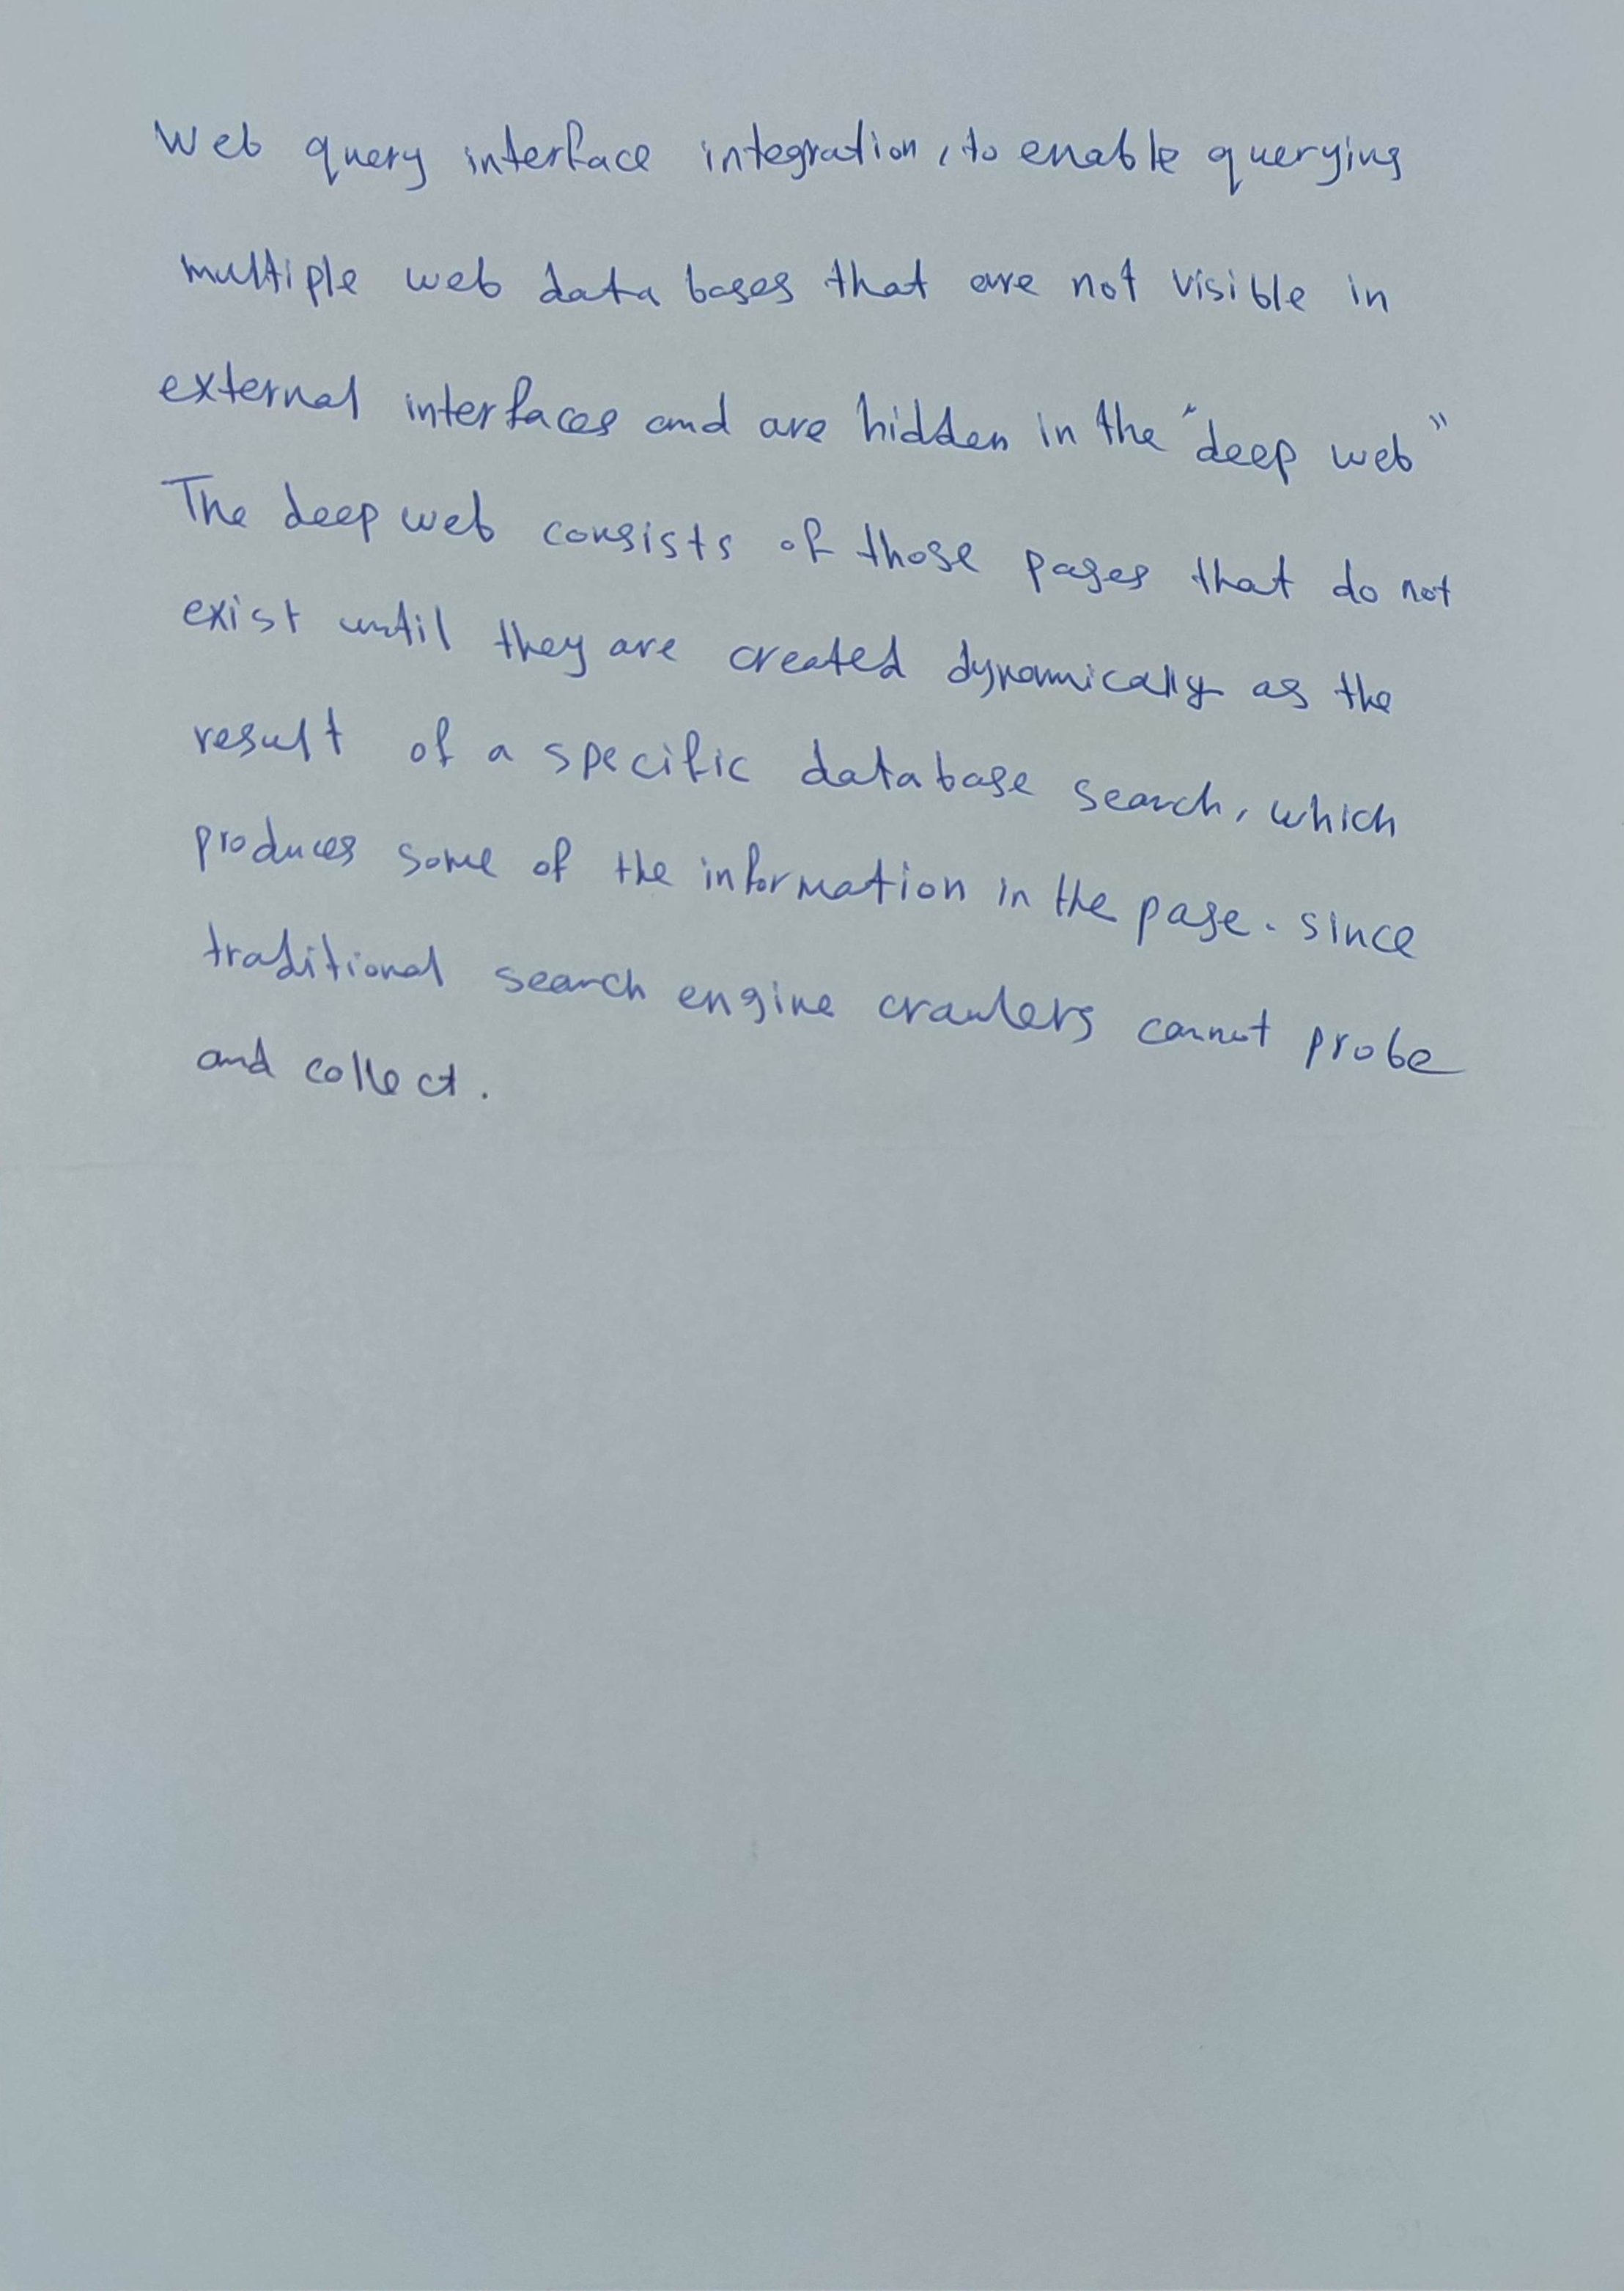 Web query interface integration, to enable querying
multiple web data bases that are not visible in
external interfaces and are hidden in the "deep web"
The deep web consists of those pages that do not
exist until they are created dynamically as the
result of a specific database search, which
produces some of the information in the page. since
traditional search engine crawlers cannot probe
and collect.